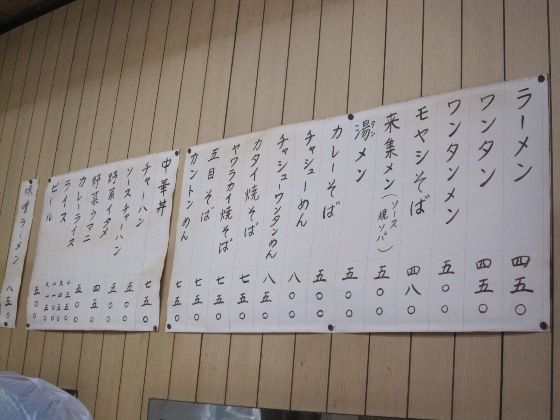 ラーメン 四五〇
ワンタン 四五〇
ワンタンメン 五〇〇
モヤシそば 四八〇
来集メン(ソース焼ソバ) 五〇〇
湯メン タン 五〇〇
カレーそば 五〇〇
チャシューめん 八〇〇
チャシューワンタンめん 八五〇
カタイ焼そば 七五〇
ヤワラカイ焼そば 七五〇
五目そば 七五〇
カントンめん 七五〇
中華丼 七五〇
チャーハン 五〇〇
ソースチャーハン
野菜イタメ
野菜ウマニ
カレーライス
ライス
ビール 五〇〇
味噌ラーメン 八五〇